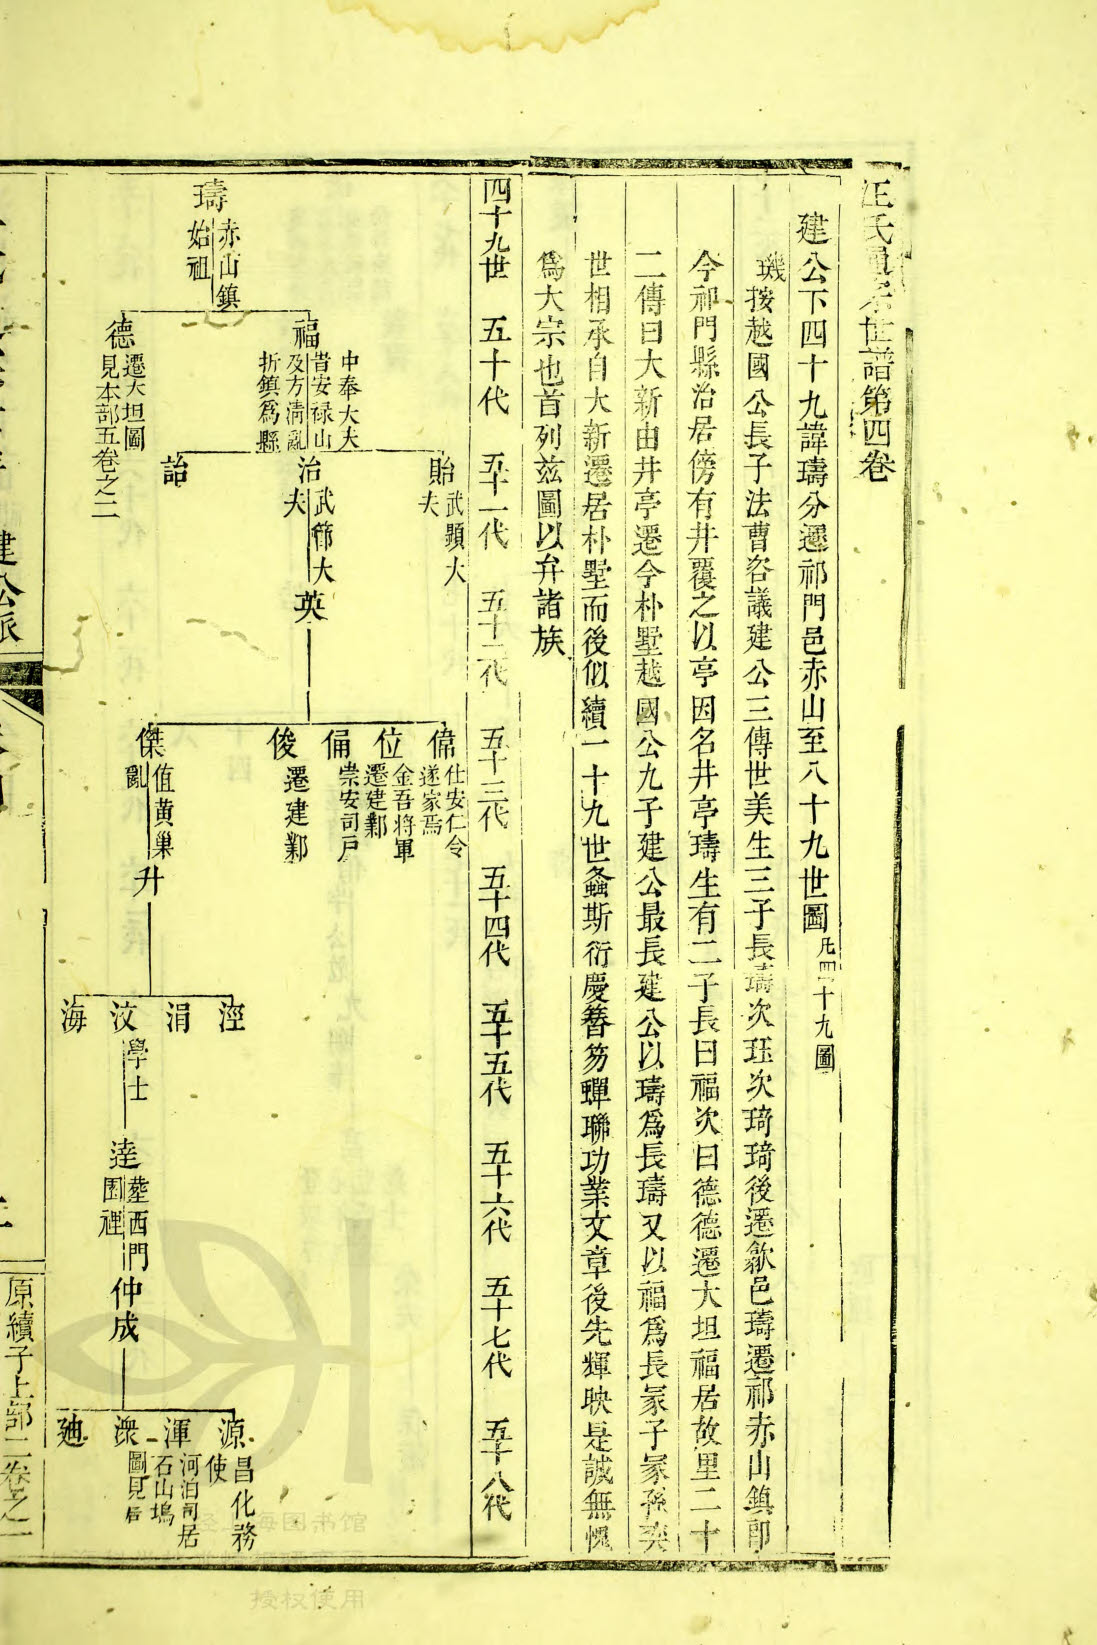 汪氏員希世譜第四卷
建公下四十九諱璹分遷祁門邑赤山至八十九世圖凡四十九圖
璣按越國公長子法曹咨議建公三傳世美生三子長璹次珏次琦琦後遷歙邑璹遷祁赤山鎮卽
今祁門縣治居傍有井覆之以亭因名井亭璹生有二子長曰福次曰德德遷大坦福居故里二十
二傳曰大新由井亭遷今朴墅越國公九子建公最長建公以璹爲長璹又以福爲長冡子冡孫奕
世相承自大新遷居朴墅而後似續一十九世螽斯衍慶簪笏蟬聯功業文章後先輝映是誠無愧
爲大宗也首列兹圖以弁諸族
四十九世 五十代 五十一代 五十二代 五十三代 五十四代 五十五代 五十六代 五十七代 五十八代
璹 赤山鎮始祖
福 中奉大夫昔安禄山及方清亂折鎮爲縣
德 遷大坦圖見本部五卷之二
貽 武顯大夫
治 武節大夫
詒
英
偉 仕安仁令遂家焉
位 金吾将軍遷建鄴
偁 崇安司戶
俊 遷建鄴
傑 值黄巢亂
升
涇
涓
汶 學士
海
逹 塟西門圊裡
仲成
源 昌化務使
渾 河泊司居石山塢
潨 圖見后
廸
建公派
原續子上部二卷之一
授权使用